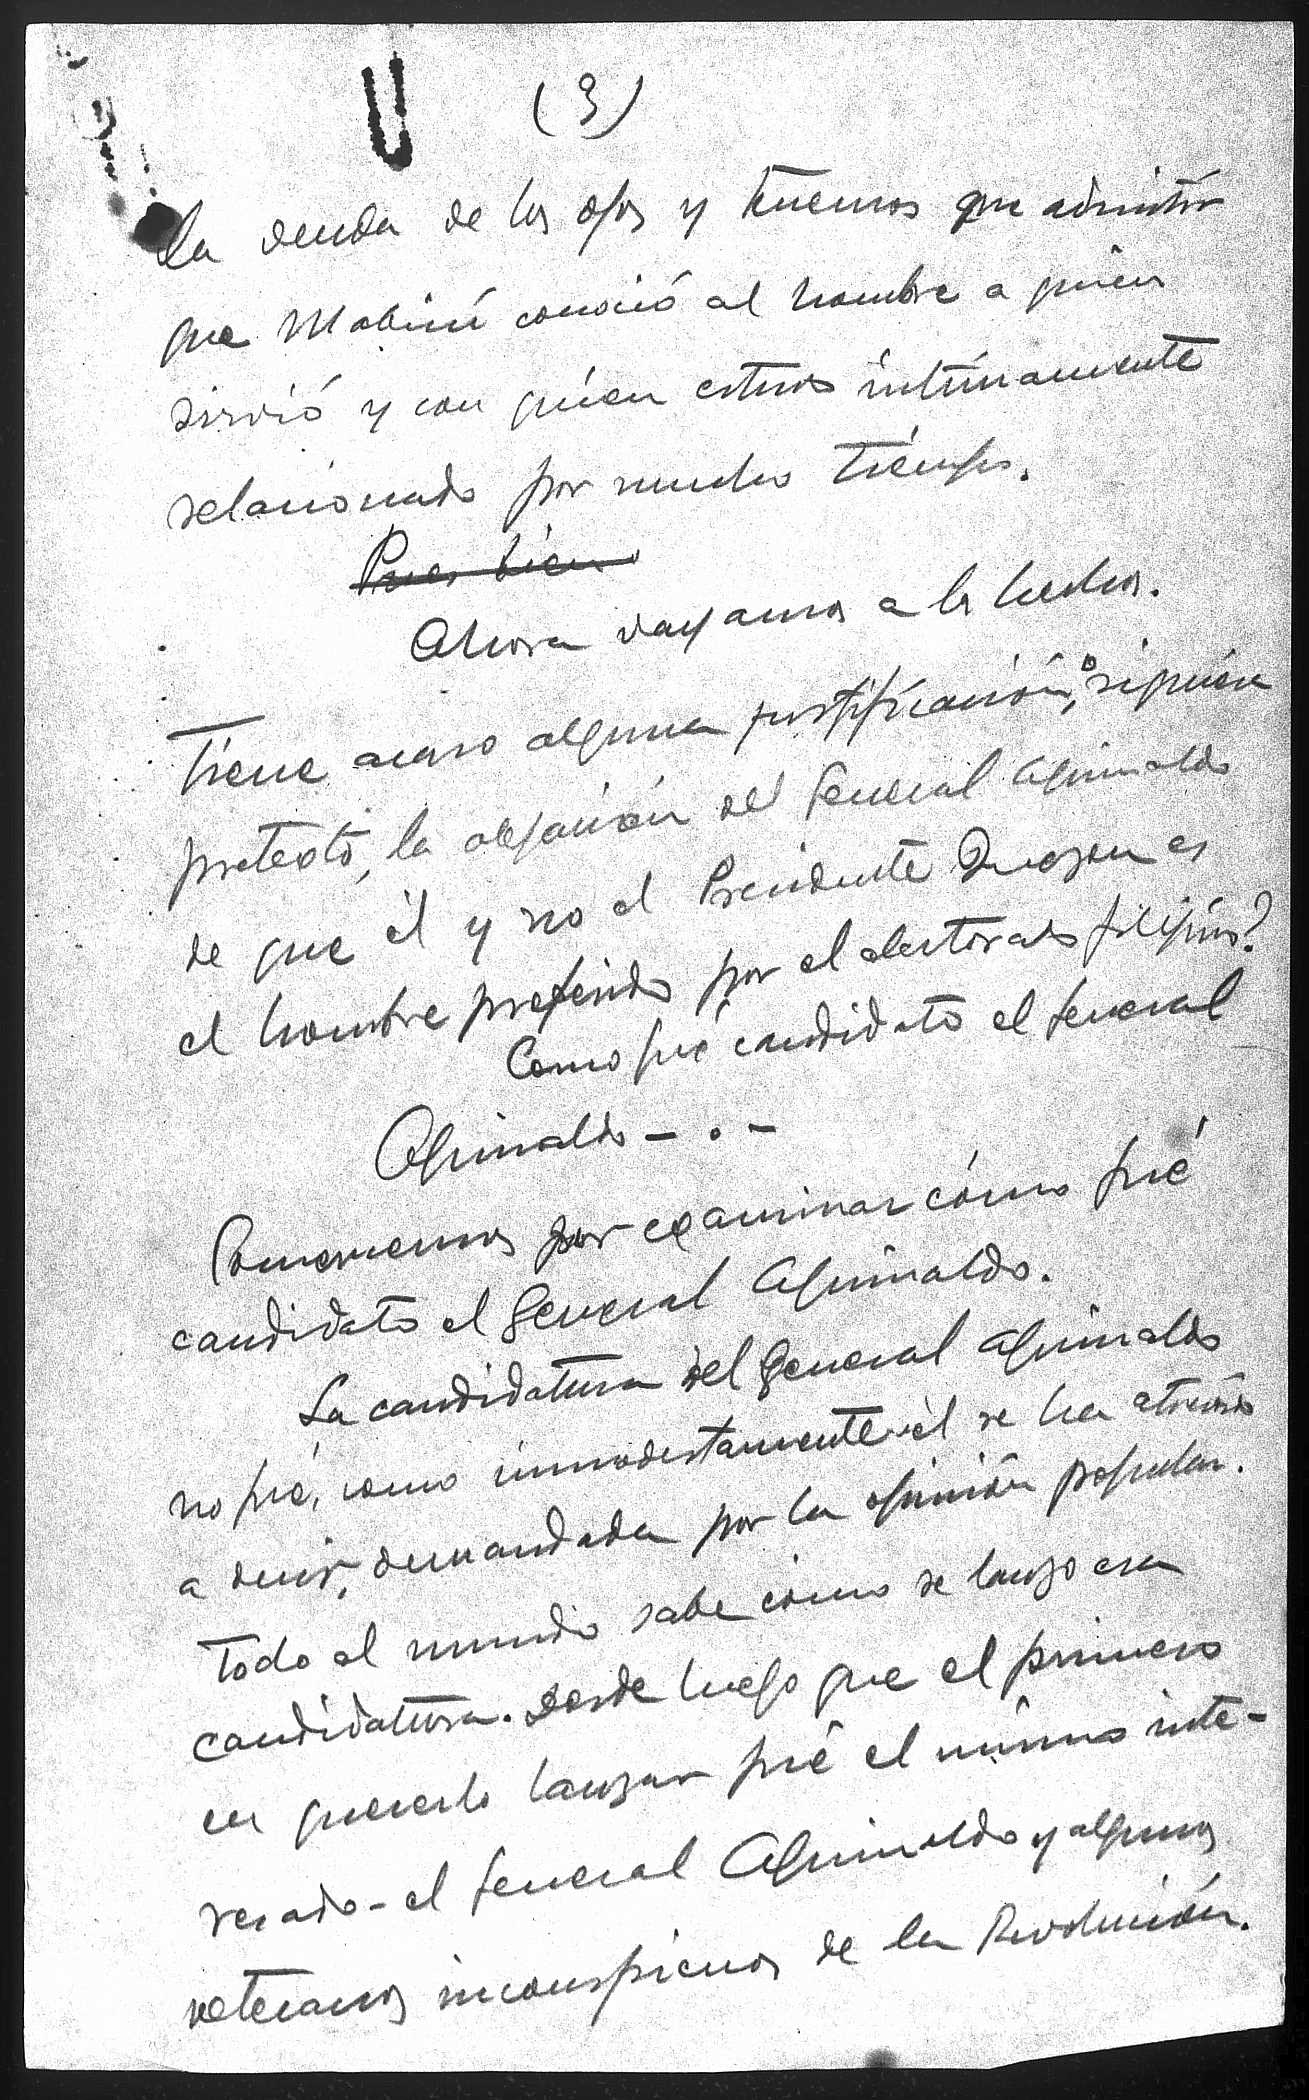 (3)
la venda de los ojos y tenemos que admitir
que Mabini conoció al hombre a quien
sirvió y con quien estuvo íntimamente
relacionado por mucho tiempo.
Pues bien
Ahora vayamos a los hechos.
Tiene acaso alguna justificación, o siquiera
pretexto, la alegación del General Aguinaldo
de que él y no el Presidente Quezon es
el hombre preferido por el electorado filipino?
Como fué candidato el General
Aguinaldo - . -
Comencemos por examinar cómo fué
candidato el General Aguinaldo.
La candidatura del General Aguinaldo
no fué, como inmodestamente él se ha atrevido
a decir, demandada por la opinión popular.
Todo el mundo sabe cómo se lanzó esa
candidatura. Desde luego que el primero
en quererlo lanzar fué el mismo inte-
resado - el General Aguinaldo y algunos
veteranos inconspicuos de la Revolución.